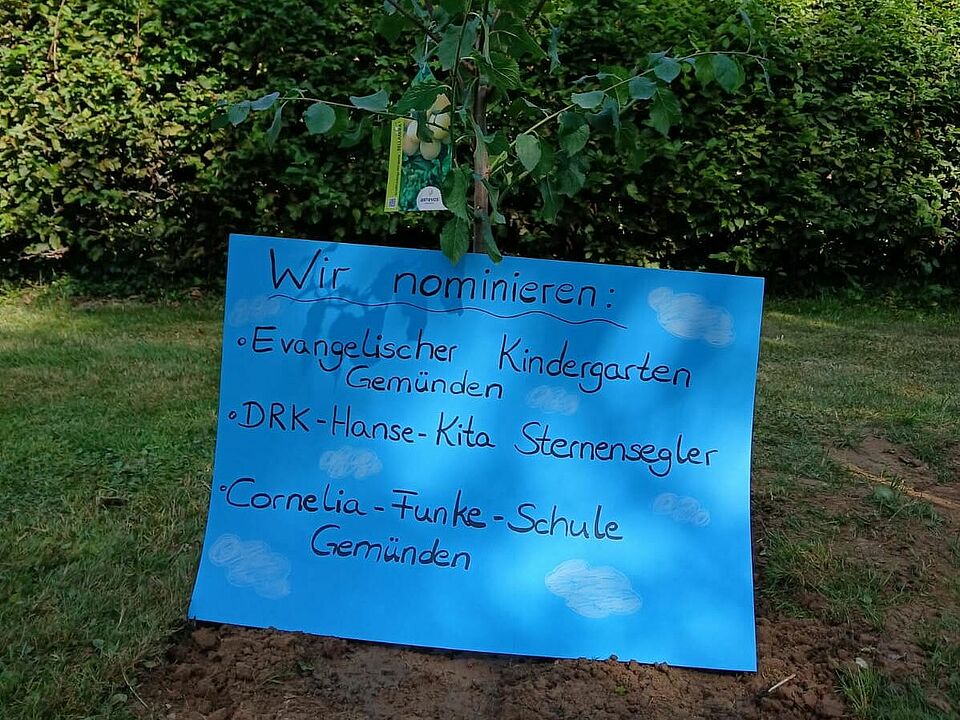 Wir nominieren:
◦Evangelischer Kindergarten
Gemünden
◦DRK-Hanse-Kita Sternensegler
◦Cornelia-Funke-Schule
Gemünden